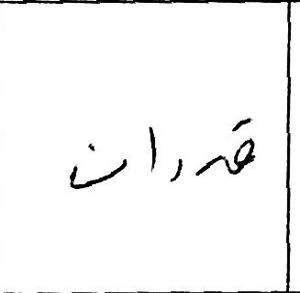 قدران